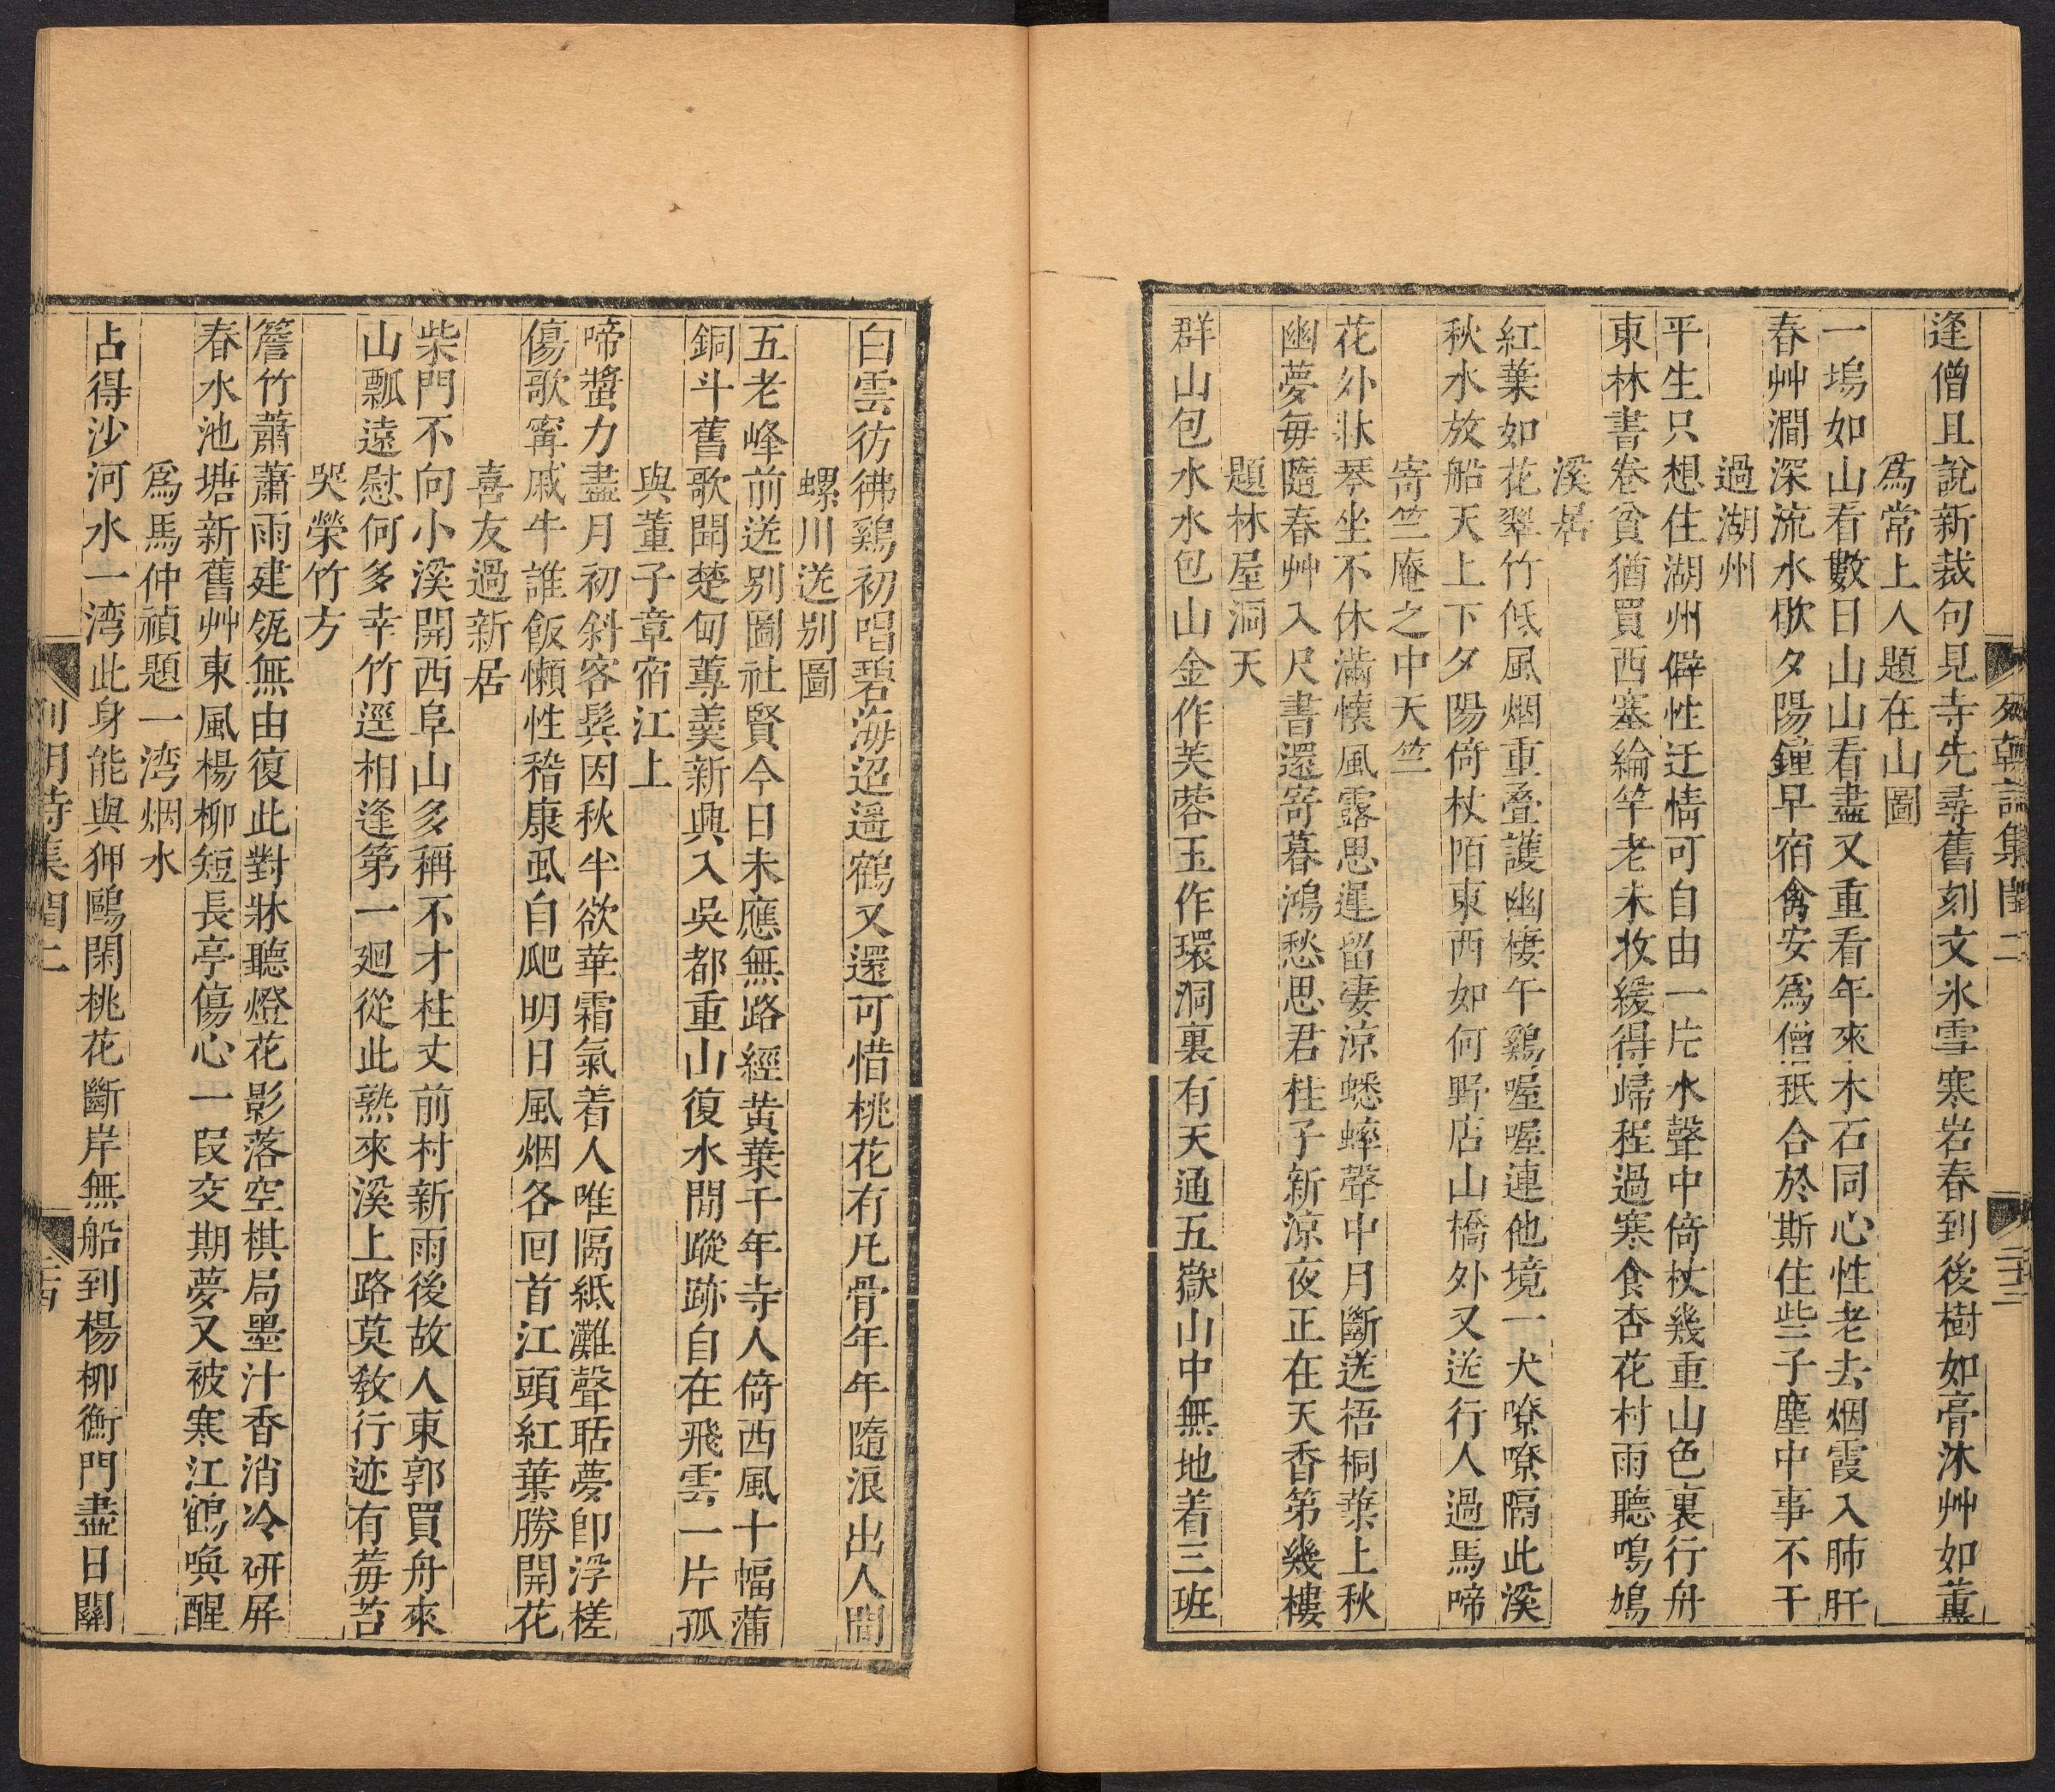 逢僧且說新裁句見寺先尋舊刻文氷雪寒岩春到後樹如膏沐艸如薰
爲常上人題在山圖
一塢如山看數日山山看盡又重看年來木石同心性老去烟霞入肺肝
春艸澗深流水歇夕陽鐘早宿禽安爲僧秖合於斯住些子塵中事不干
過湖州
平生只想住湖州僻性迂情可自由一片水聲中倚杖幾重山色裏行舟
東林書卷貧猶買西塞綸竿老未收緩得歸程過寒食杏花村雨聽鳴鳩
溪居
紅葉如花翠竹低風烟重叠護幽棲午鷄喔喔連他境一犬嘹嘹隔此溪
秋水放船天上下夕陽倚杖陌東西如何野店山橋外又送行人過馬啼
寄竺庵之中天竺
花外牀琴坐不休滿懷風露思運留妻涼蟋蟀聲中月斷送梧桐葉上秋
幽夢每隨春艸入尺書還寄暮鴻愁思君桂子新涼夜正在天香第幾樓
題林屋洞天
群山包水水包山金作芙蓉玉作環洞裏有天通五嶽山中無地着三班
列朝詩集閏二
二十三
白雲彷彿鷄初唱碧海迢遥鶴又還可惜桃花有凡骨年年隨浪出人間
螺川送別圖
五老峰前送別圖社賢今日未應無路經黄葉千年寺人倚西風十幅蒲
銅斗舊歌聞楚甸蓴羹新興入吳都重山復水間蹤跡自在飛雲一片孤
與董子章宿江上
啼螿力盡月初斜客髩因秋半欲華霜氣着人唯隔紙灘聲聒夢卽浮槎
傷歌寗戚牛誰飯懶性嵇康虱自爬明日風烟各回首江頭紅葉勝開花
喜友過新居
柴門不向小溪開西阜山多稱不才柱丈前村新雨後故人東郭買舟來
山瓢遠慰何多幸竹逕相逢第一廻從此熟來溪上路莫敎行迹有莓苔
哭榮竹方
簷竹蕭蕭雨建瓴無由復此對牀聽燈花影落空棋局墨汁香消冷研屏
春水池塘新舊艸東風楊柳短長亭傷心一叚交期夢又被寒江鶴喚醒
爲馬仲禎題一湾烟水
占得沙河水一湾此身能與狎鷗閑桃花斷岸無船到楊柳衡門盡日關